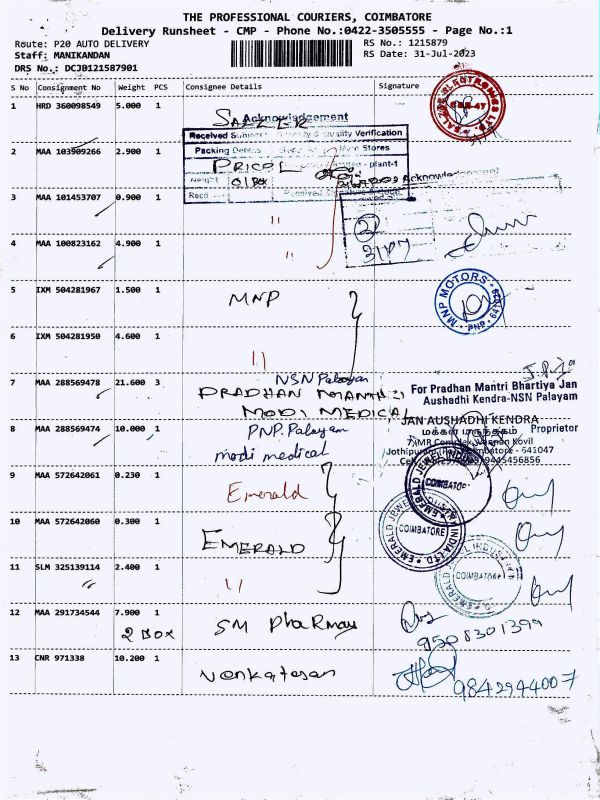 THE PROFESSIONAL COURIERS, COIMBATORE
Delivery Runsheet - CMP - Phone No.:0422-3505555 - Page No.:1
Route: P20 AUTO DELIVERY
RS No.: 1215879
Staff: MANIKANDAN
RS Date: 31-Jul-2023
DRS No.: DCJB121587901
S No Consignment No Weight PCS Consignee Details Signature
1 HRD 360098549 5.000 1
Acknowledgement
Received Verification
2 MAA 103909266 2.900 1
Packing Stores
PRICOL plant-1
Acknowledgement
3 MAA 101453707 0.900 1 "
21
31/7
4 MAA 100823162 4.900 1 "
5 IXM 504281967 1.500 1 MNP
MNP MOTORS
PNP
6 IXM 504281950 4.600 1 "
7 MAA 288569478 21.600 3 NSN Palayam
PRADHAN MANTHRI
MODI MEDICAL
For Pradhan Mantri Bhartiya Jan
Aushadhi Kendra-NSN Palayam
Proprietor
8 MAA 288569474 10.000 1 PNP. Palayam
modi medical
JAN AUSHADHI KENDRA
மக்கள் மருந்தகம்
9 MAA 572642061 0.230 1 Emerald
COIMBATORE
10 MAA 572642060 0.300 1 EMERALD
EMERALD JEWEL INDUSTRY INDIA LTD
COIMBATORE
11 SLM 325139114 2.400 1 "
COIMBATORE
12 MAA 291734544 7.900 1 SM Pharmacy
2 BOX
9508301399
13 CNR 971338 10.200 1 Venkatesan
9842944007